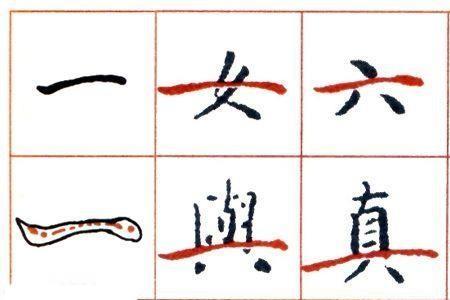 一 女 六
與 真